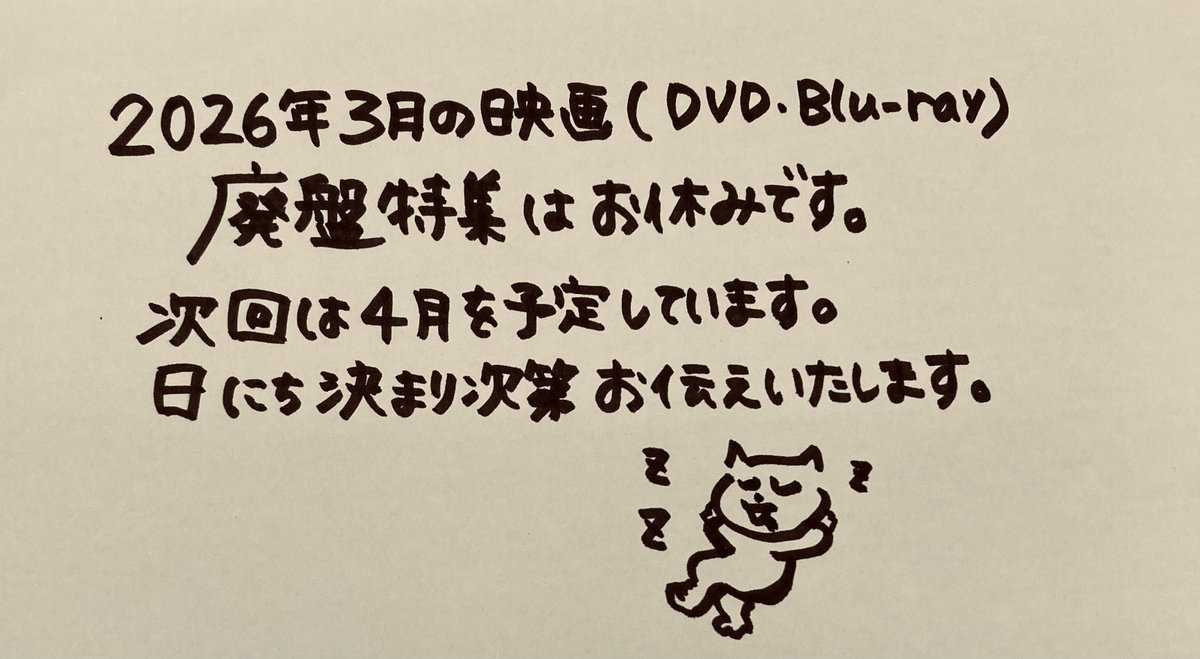 2026年3月の映画(DVD・Blu-ray)
廃盤特集はお休みです。
次回は4月を予定しています。
日にち決まり次第お伝えいたします。
z
z
z